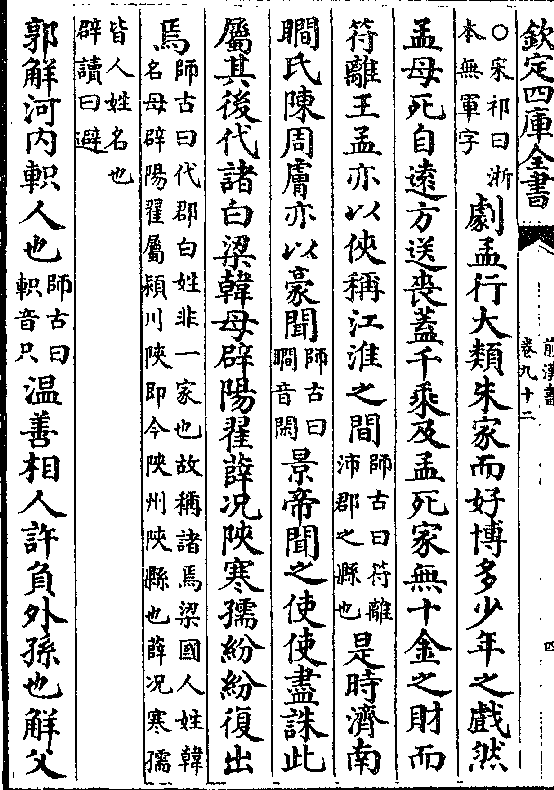 欽定四庫全書
前漢書
卷九十二
四
○宋祁曰浙
本無軍字
劇孟行大類朱家而好博多少年之戲然
孟母死自遠方送喪蓋千乘及孟死家無十金之財而
符離王孟亦以俠稱江淮之間
師古曰符離
沛郡之縣也
是時濟南
瞯氏陳周膚亦以豪聞
師古曰
瞯音閑
景帝聞之使使盡誅此
屬其後代諸白梁韓母辟陽翟薛况陜寒孺紛紛復出
焉
師古曰代郡白姓非一家也故稱諸焉梁國人姓韓
名母辟陽翟屬潁川陜即今陜州陜縣也薛况寒孺
皆人姓名也
辟讀曰避
郭解河内軹人也
師古曰
軹音只
温善相人許負外孫也解父